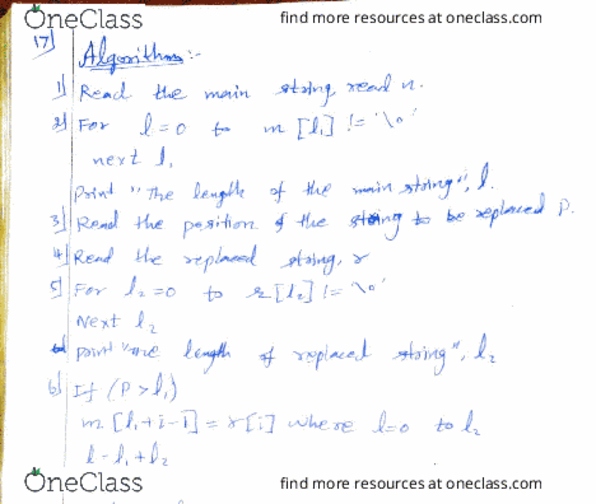 OneClass find more resources at oneclass.com
17) Algorithm:-
1) Read the main string, read n.
2) For l=0 to m[l1] != '\0'
next l1
Print "The length of the main string", l.
3) Read the position of the string to be replaced P.
4) Read the replaced string, r
5) For l2=0 to r[l2] != '\0'
Next l2
print "The length of replaced string", l2
6) If (P>l1)
m[l1+i-1]=r[i] where l=0 to l2
l-l1+l2
OneClass find more resources at oneclass.com